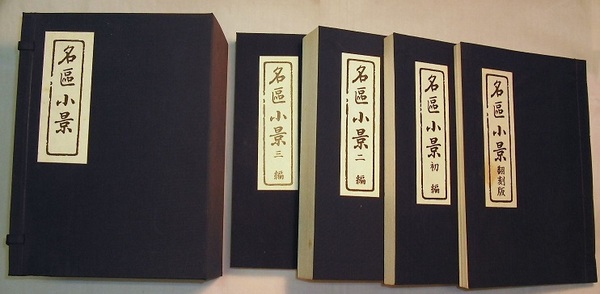 名區小景
名區小景 三編
名區小景 二編
名區小景 初編
名區小景 翻刻版